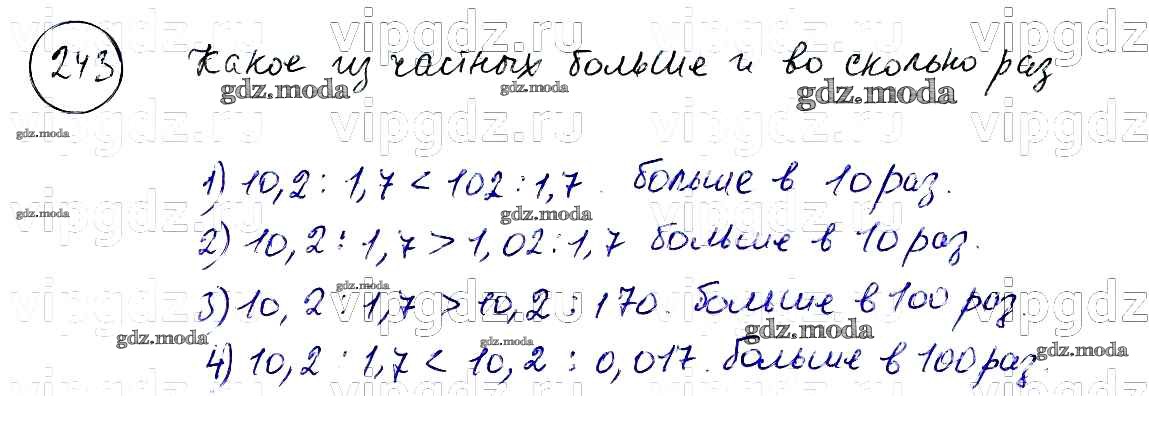 243 Какое из частных больше и во сколько раз
1) 10,2 : 1,7 < 102 : 1,7. больше в 10 раз.
2) 10,2 : 1,7 > 1,02 : 1,7 больше в 10 раз.
3) 10,2 : 1,7 > 10,2 : 170. больше в 100 раз.
4) 10,2 : 1,7 < 10,2 : 0,017. больше в 100 раз.
vipgdz.ru
gdz.moda